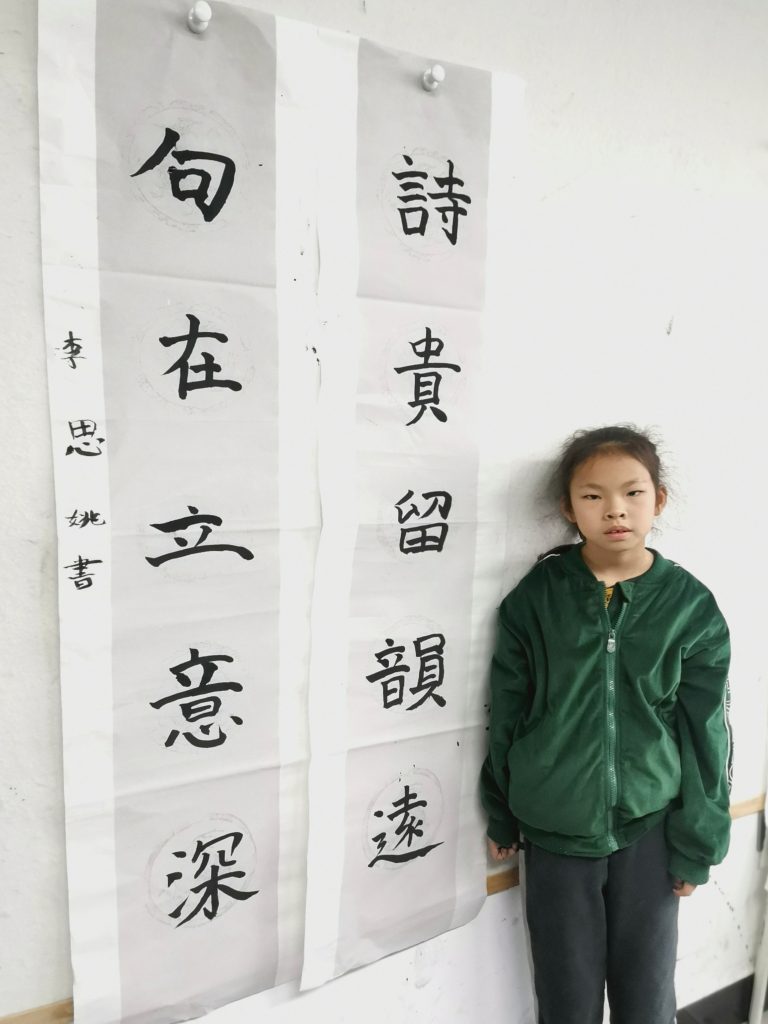 詩貴留韻遠
句在立意深
李思姚書